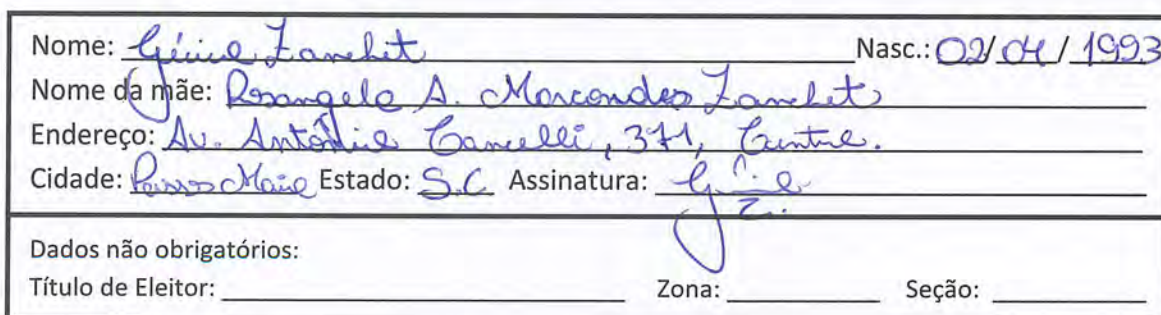 Nome: Gênice Zanchet Nasc.: 02/04/1993
Nome da mãe: Rosangela A. Marcondes Zanchet
Endereço: Av. Antônio Cancelli, 371, Centro.
Cidade: Passos Maia Estado: S.C Assinatura:
Dados não obrigatórios:
Título de Eleitor: Zona: Seção: